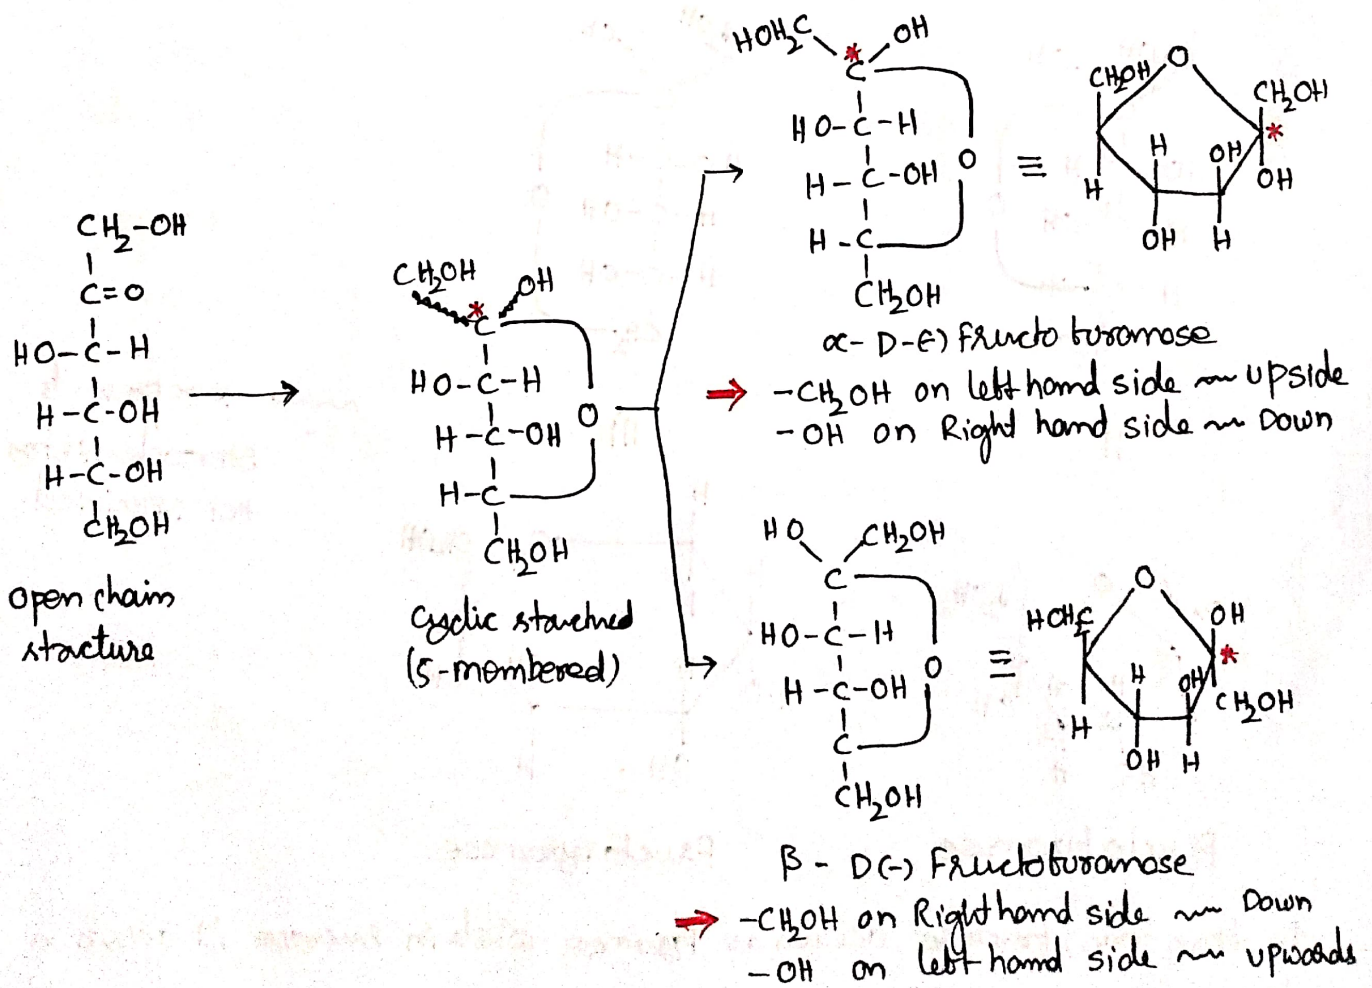 CH2-OH
C=O
HO-C-H
H-C-OH
H-C-OH
CH2OH
open chain
stracture
CH2OH OH
*
C
HO-C-H
H-C-OH O
H-C
CH2OH
Cyclic
(5-membered)
HOH2C OH
*
C
HO-C-H
H-C-OH O
H-C
CH2OH
≡
O
CH2OH CH2OH
*
H OH
H OH
OH H
α- D-(-) Fructo furanose
→ -CH2OH on left hand side ~ upside
-OH on Right hand side ~ Down
HO CH2OH
C
HO-C-H
H-C-OH O
C
CH2OH
≡
O
HOH2C OH
*
H OH
CH2OH
H
OH H
β- D(-) Fructofuranose
→ -CH2OH on Right hand side ~ Down
-OH on left hand side ~ upwards